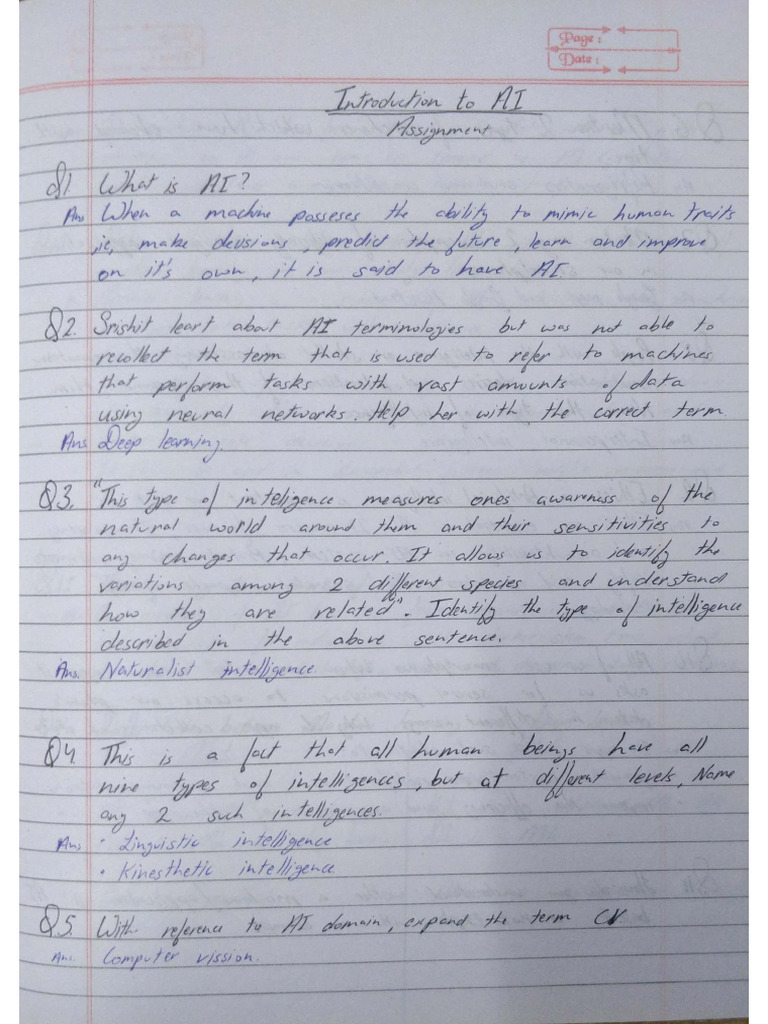 Page :
Date :
Introduction to AI
Assignment
Q1. What is AI?
Ans When a machine posseses the ability to mimic human traits
ie, make decisions, predict the future, learn and improve
on it's own, it is said to have AI.
Q2. Srishit leart about AI terminologies but was not able to
recollect the term that is used to refer to machines
that perform tasks with vast amounts of data
using neural networks. Help her with the correct term.
Ans Deep learning.
Q3. "This type of inteligence measures ones awareness of the
natural world around them and their sensitivities to
any changes that occur. It allows us to identify the
variations among 2 different species and understand
how they are related". Identify the type of intelligence
described in the above sentence.
Ans. Naturalist intelligence.
Q4 This is a fact that all human beings have all
nine types of intelligences, but at different levels, Name
any 2 such intelligences.
Ans • Linguistic intelligence
• Kinesthetic intelligence.
Q5. With reference to AI domain, expand the term CV
Ans. Computer vission.